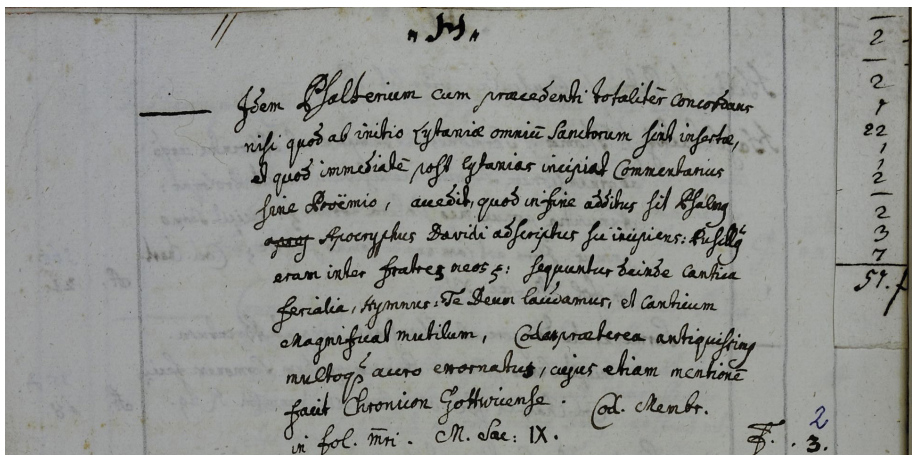 Idem Psalterium cum præcedenti totalitèr concordans
nisi quod ab initio Lytaniæ omniũ Sanctorum sint insertæ,
et quod immediatè post Lytanias incipiat Commentarius
sine Proëmio, accedit, quod in fine additus sit Psalmus
Apocryphus Davidi adscriptus sic incipiens: Pusillus
eram inter fratres meos: sequuntur deinde Cantica
ferialia, Hymnus: Te Deum laudamus, et Canticum
Magnificat mutilum, Codex præterea antiquissimus
multoqꝫ auro exornatus, cujus etiam mentionẽ
facit Chronicon Gottwicense. Cod. Membr.
in fol. m̃ri. M. Sæc: IX. F. 3.
2
2
2
1
22
1
1
2
2
3
7
57.